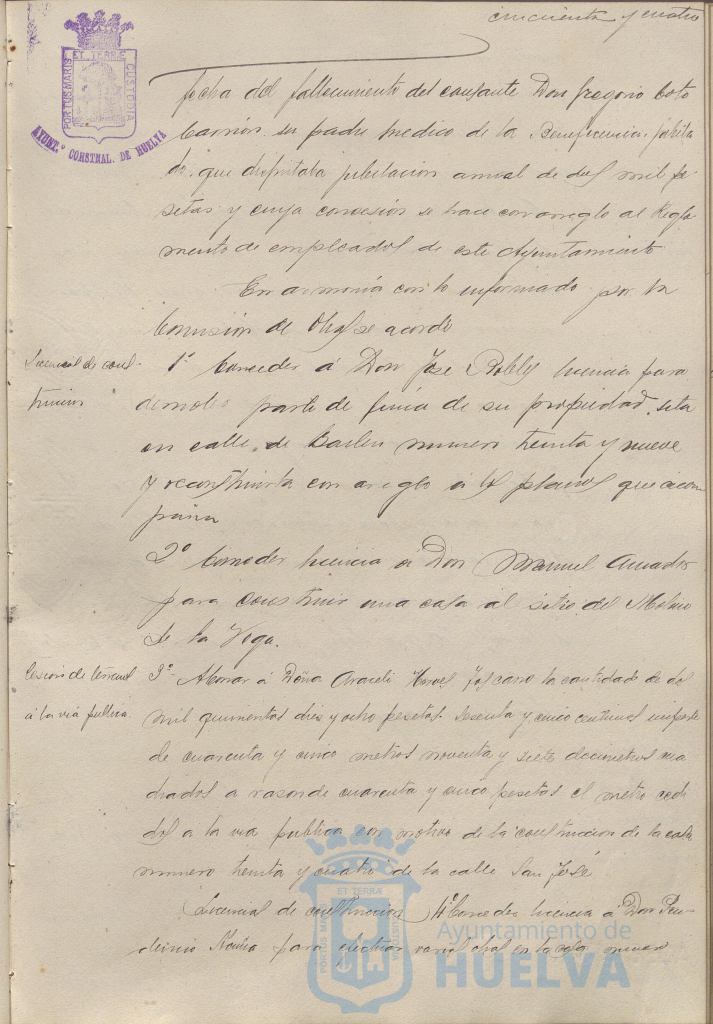 cincuenta y cuatro
PORTUS MARIS ET TERRÆ CUSTODIA
AYUNTº CONSTNAL. DE HUELVA
fecha del fallecimiento del causante Don Gregorio Coto
Carrion su padre medico de la Beneficencia jubila
do, que disfrutaba jubilacion anual de dos mil pe
setas y cuya concesión se hace con arreglo al Regla
mento de empleados de este Ayuntamiento
En armonia con lo informado por la
Comisión de Obras se acordó
Licencias de cons-
truccion
1º Conceder á Don Jose Robles licencia para
demoler parte de finca de su propiedad, sita
en calle de Bailen numero treinta y nueve
y reconstruirla con areglo á los planos que acom
paña
2º Conceder licencia á Don Manuel Amador
para construir una casa al sitio del Molino
de la Vega.
Cesion de terrenos
á la via publica
3º- Abonar á Doña Araceli Toscano la cantidad de dos
mil quinientas diez y ocho pesetas sesenta y cinco centimos importe
de cuarenta y cinco metros noventa y siete decimetros cua
drados a razon de cuarenta y cinco pesetas el metro cedi
dos a la via publica con motivo de la construccion de la casa
numero treinta y cuatro de la calle San José
Licencias de construccion 4º Conceder licencia á Don
para efectuar varias obras en la casa numero
PORTUS MARIS ET TERRÆ CUSTODIA
Ayuntamiento de
HUELVA